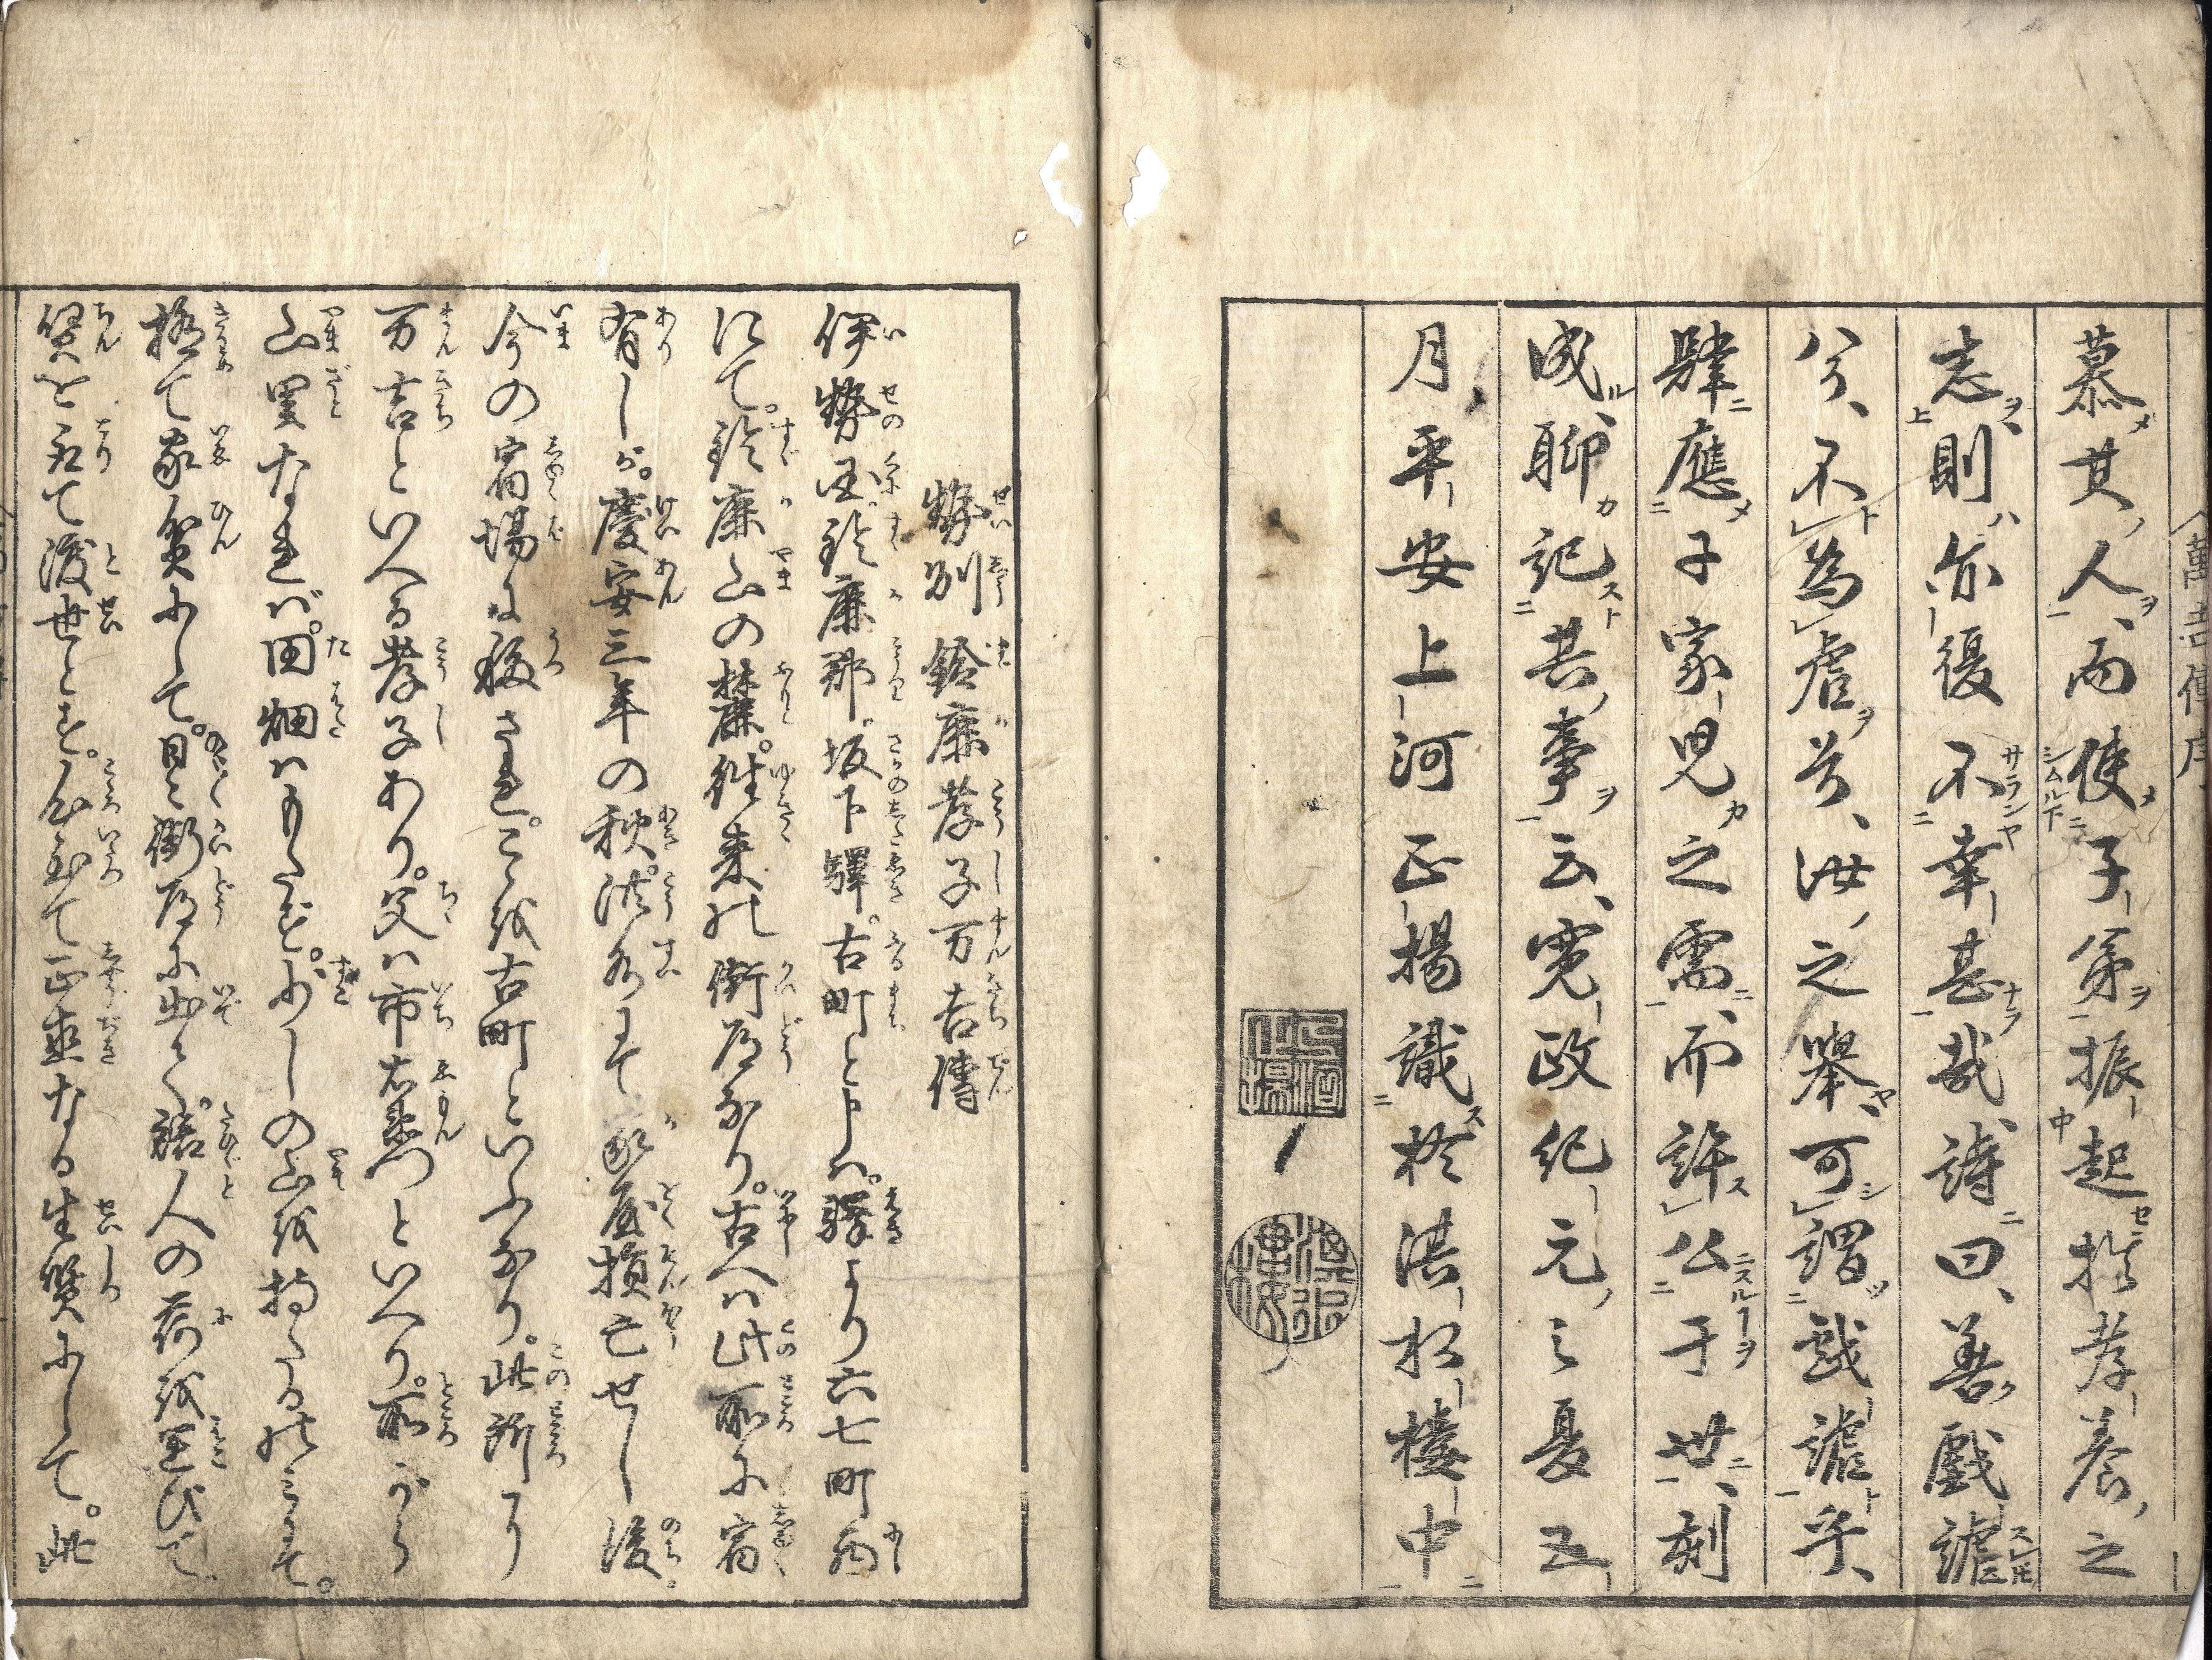 慕其人、而使子弟振起於孝養之
志、則亦復不幸甚哉、詩曰、善戯謔
兮、不為虐兮、汝之舉、可謂戯謔乎、
肆應子家児之需、而許公于世、刻
成、聊記其事云、寛政紀元之夏五
月、平安上河正揚識於淇松楼中
勢州鈴鹿孝子万吉傳
伊勢国鈴鹿郡坂下驛。古町と申ハ。驛より六七町西
にて。鈴鹿山の麓。徃来の街道なり。古へハ此所に宿
有しが。慶安三年の秋。洪水にて家屋損亡せし後。
今の宿場に移され。こゝを古町といふなり。此所に
万吉といへる孝子あり。父ハ市右衛門といへり。所がら
山里なれバ。田畑ハもたず。少しの山を持たるのミにて。
極て家貧にして。日々街道に出て。旅人の荷を運びて
賃を取て渡世とす。心至て正直なる生質にして。此